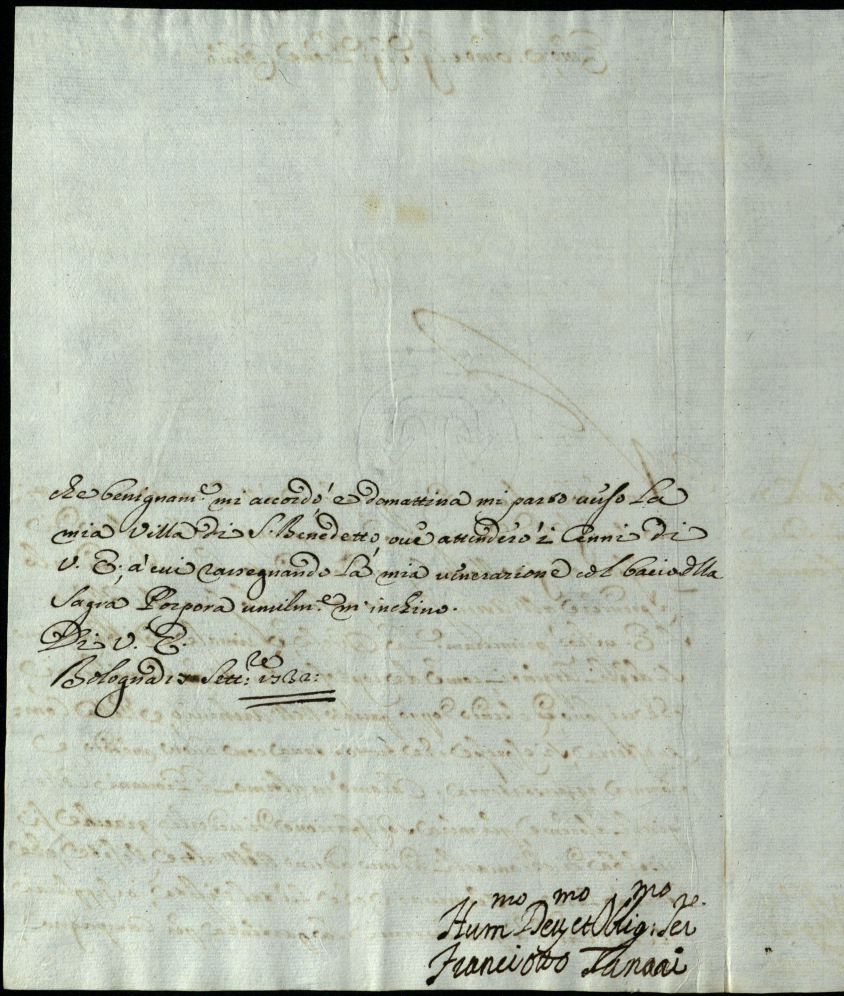 che benignam.e mi accordò e domattina mi parto verso La
mia Villa di S. Benedetto, ove attenderò i Cenni di
V. E. à cui rassegnando La mia venerazione col bacio della
Sagra Porpora umilm.e m'inchino.
Di V. E.
Bologna di Sett.re
Hum.mo Dev.mo et Oblig.mo Ser.re
Franciotto Tanari